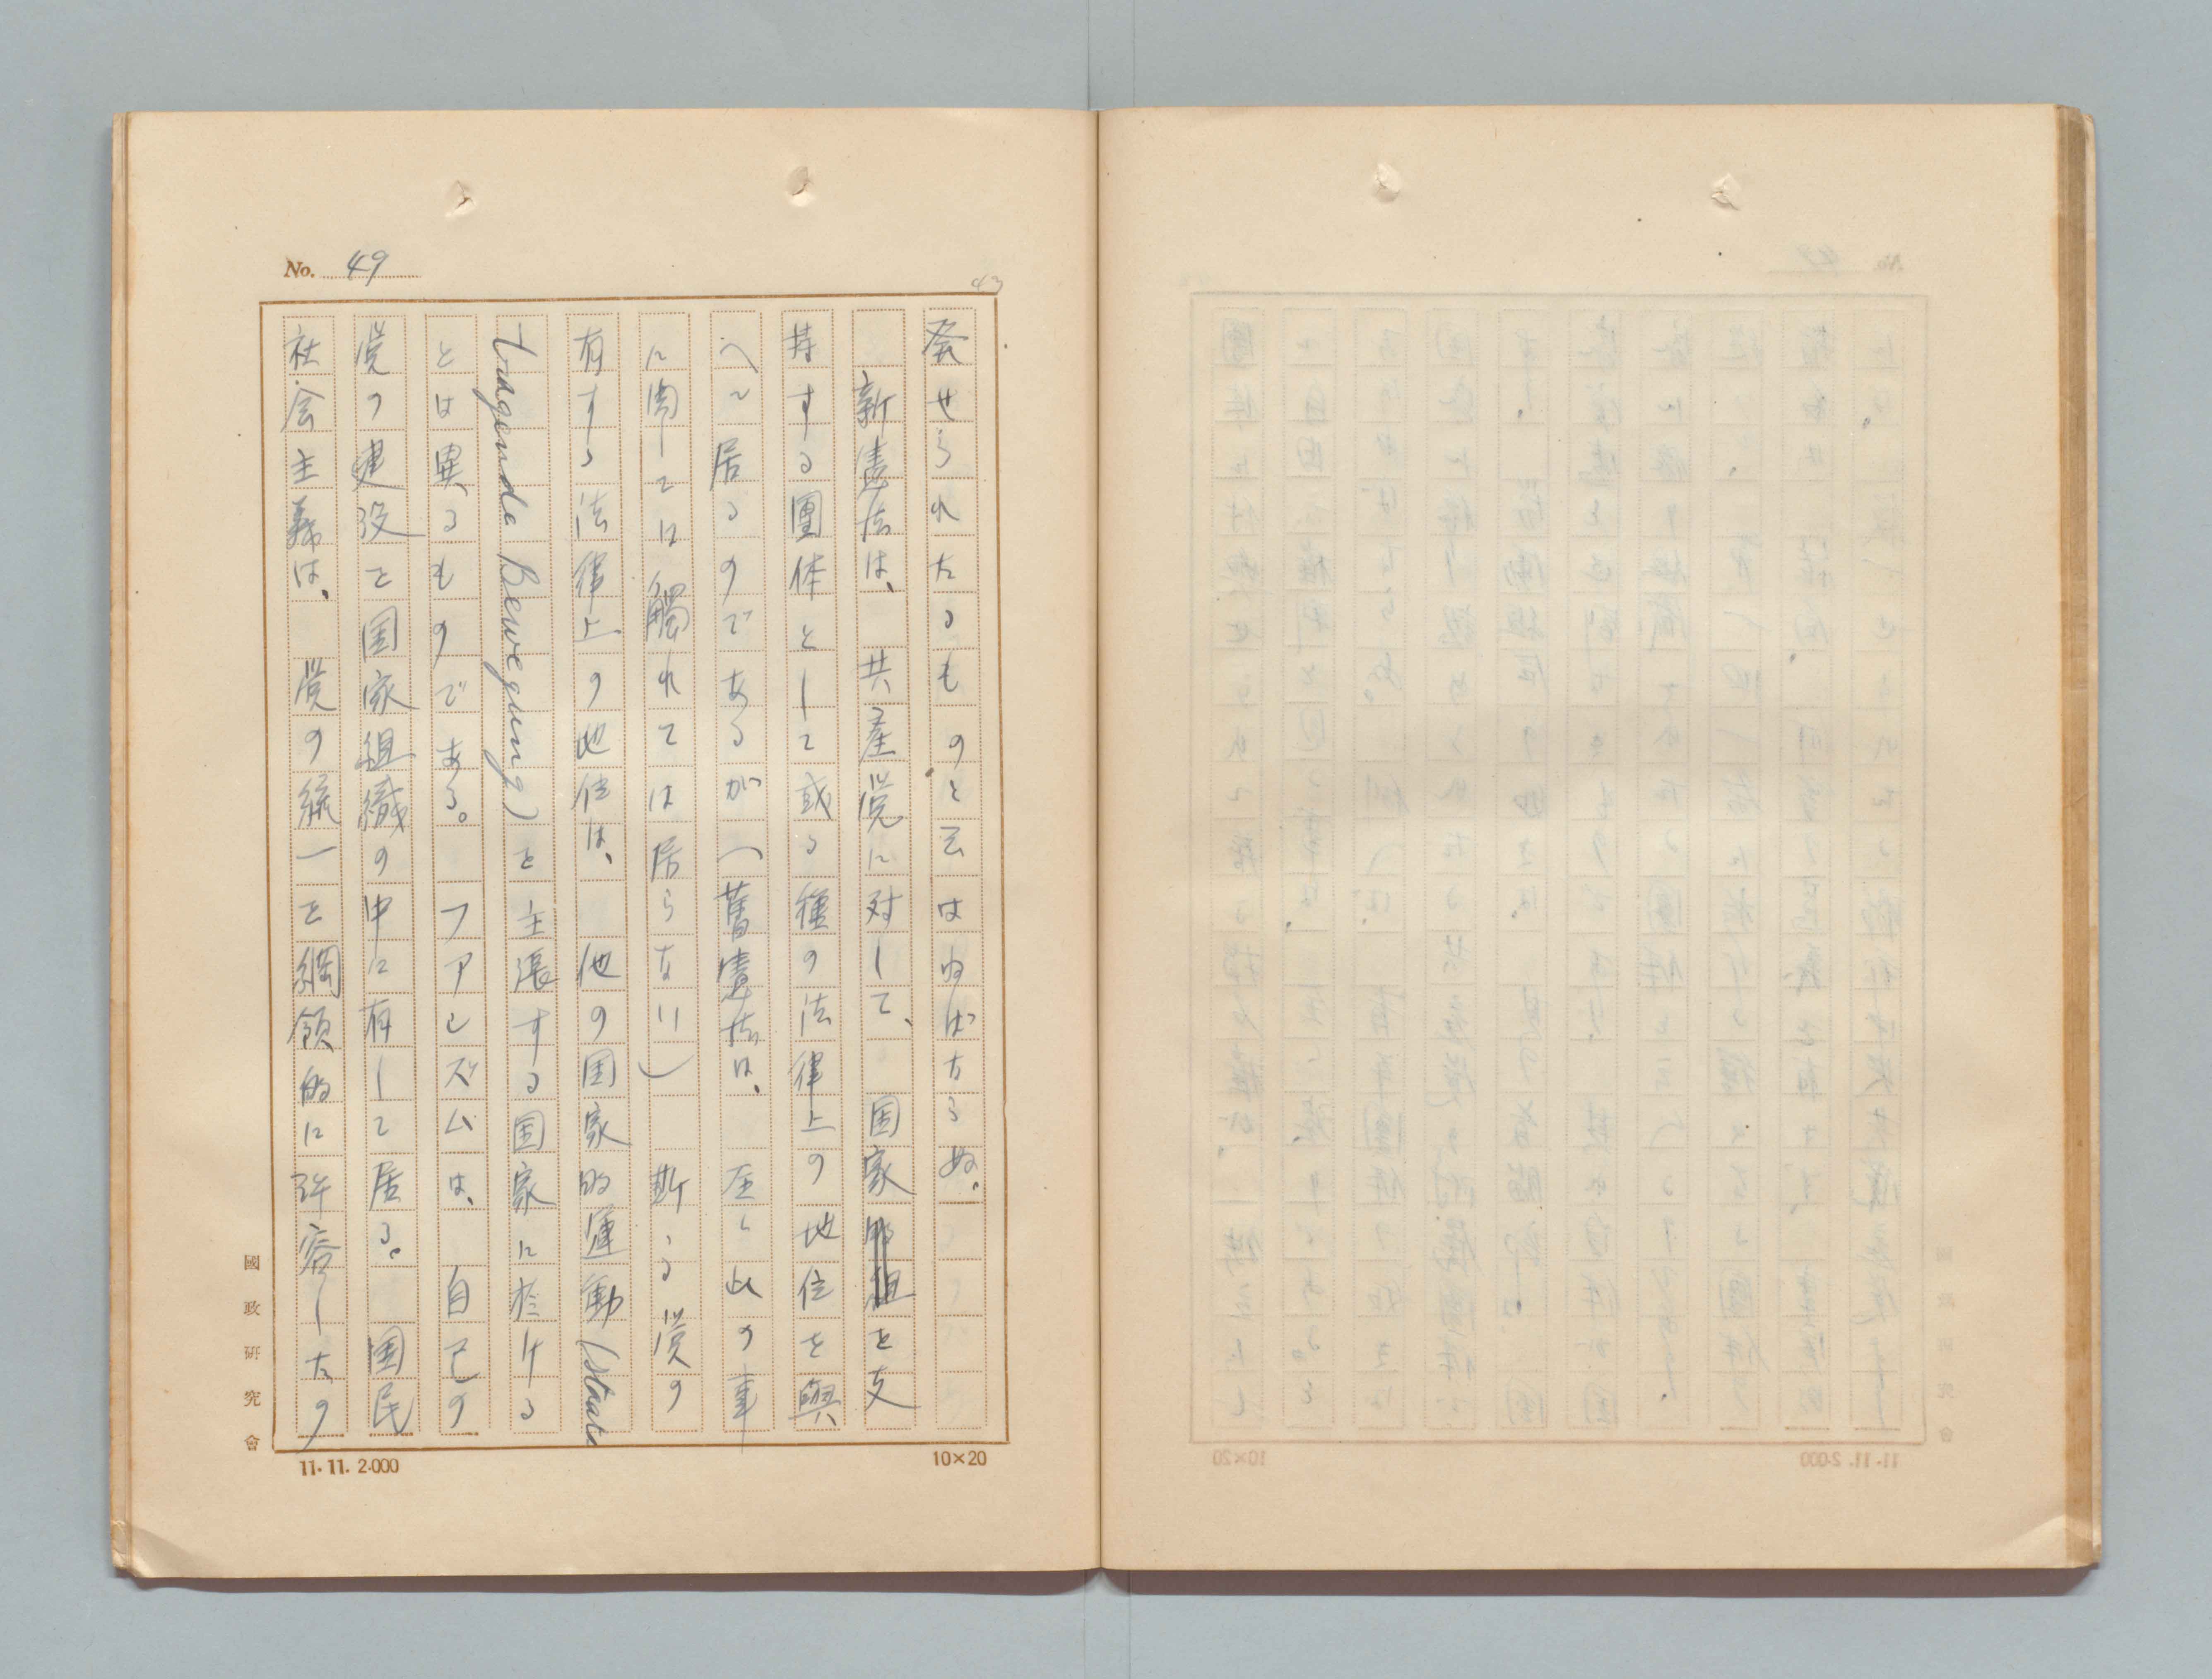 No. 49
43
発せられたるものと云はねばならぬ。
新憲法は、共産党に対して、国家を支
持する團体として或る種の法律上の地位を與
へて居るのであるが(舊憲法は、全く此の事
に関しては觸れては居らない)斯る党の
有する法律上の地位は、他の国家的運動(Staats
tragende Bewegung)を主張する国家に於ける
とは異るものである。ファシズムは、自己の
党の建設を国家組織の中に有して居る。国民
社会主義は、党の統一を綱領的に許容したの
國政研究會
11.11. 2.000
10×20